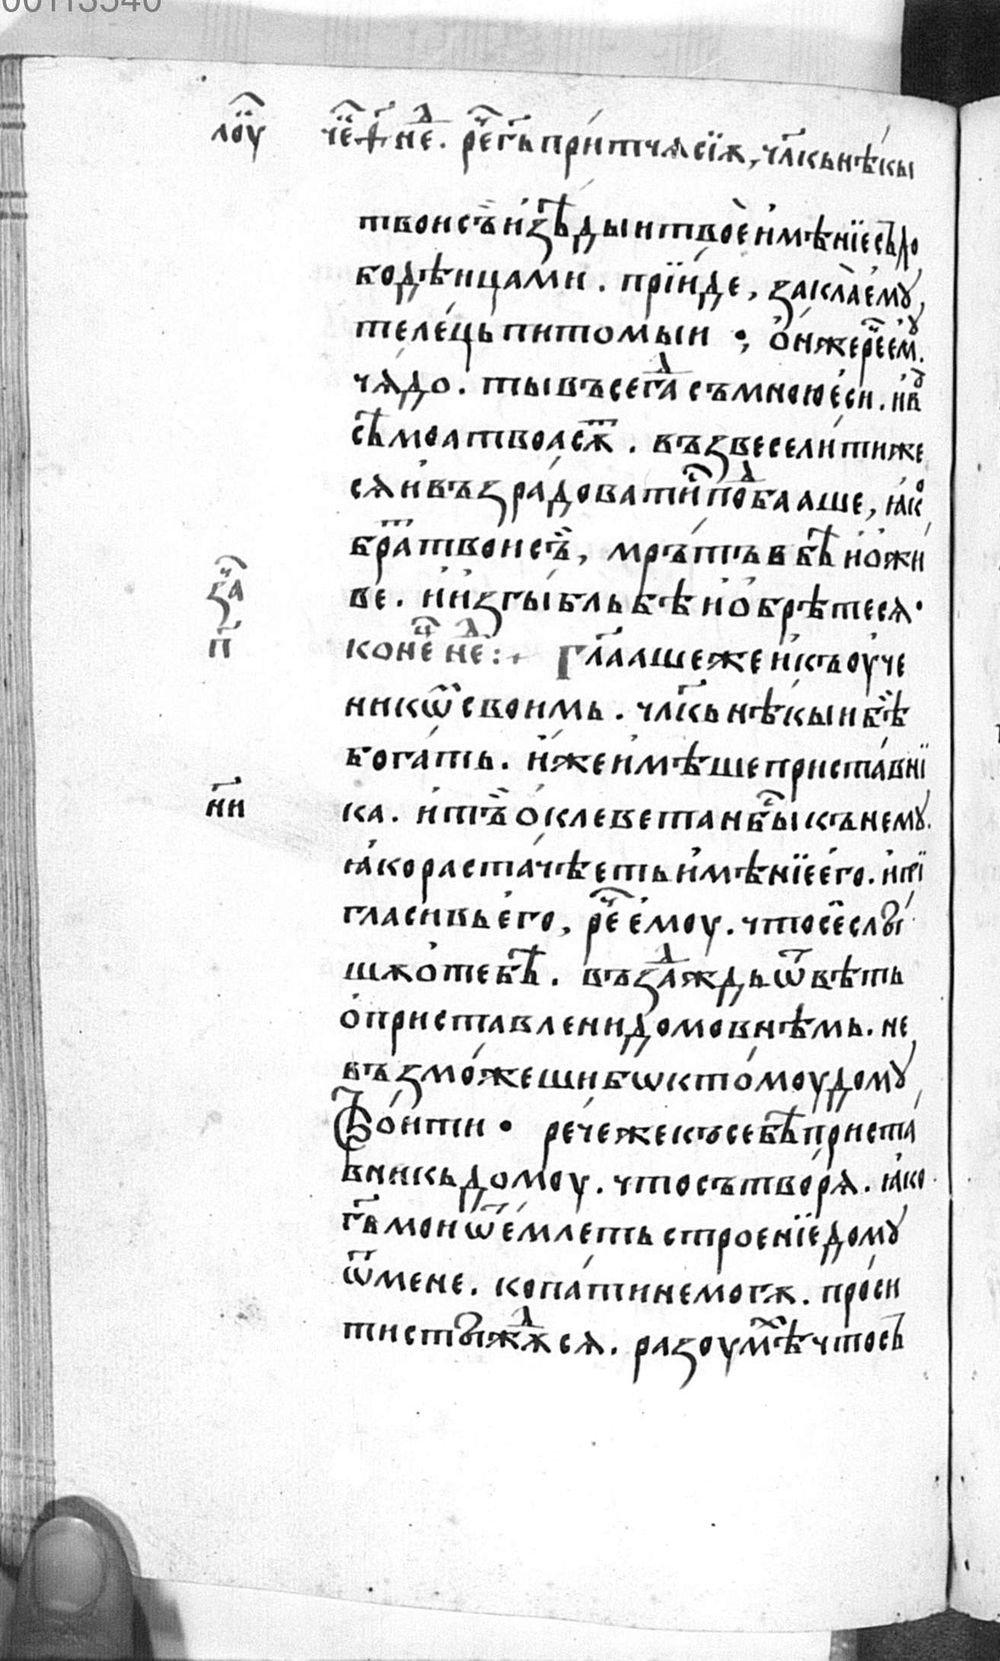 00113540
лоу че ѳ҃ неⷣ. реⷱ҇ гь притчѧ сїѫ, чл҃кь нѣкы
твои съ̀ и҆з̾ѣды и твоѐ и҆мѣнїе съ лю
бодѣицами. прїиде, закла е҆моу,
телець питомыи ⁘ ѻ҆н же реⷱ҇ е҆моу.
чѧдо. ты въсегⷣа съ мною е҆си. и҆ в̾
сѣ моа твоа сѫⷮ. възвеселити же
сѧ и҆ възрадовати ⷭ҇ поⷣбааше, ꙗ҆кⷪ
браⷮ твои съ̀, мрътъв бѣ и҆ ѻ҆жи
ве. и҆ и҆згыбль бѣ и҆ ѻ҆брѣтесѧ.
заⷱ҇
п҃ конеⷰ҇ неⷣ :+ Гл҃ааше же и҆ къ оу҆че
никѡⷨ своимь. чл҃кь нѣкыи бѣ̀
богать. и҆же и҆мѣше приставни
н҃и ка. и҆ тъ̀ ѻ҆клеветан быⷭ҇ къ немоу.
ꙗ҆ко растачѣеть и҆мѣнїе е҆го. и҆ при
гласивь е҆го, реⷱ҇ е҆моу. что се слы
шѫ ѻ҆ тебѣ. въздⷣаждь ѿвѣть
ѻ҆ приставлени домовнѣмь. не
възможеши бѡ к томоу домоу
строити • рече же къ себѣ приста
вникь домоу. что сътворѧ. ꙗ҆ко
г҃ь мои ѿе҆млеть строенїе домоу
ѿ мене. копати не могѫ. проси
ти стыжⷣѫсѧ. разоумⷯѣ что съ